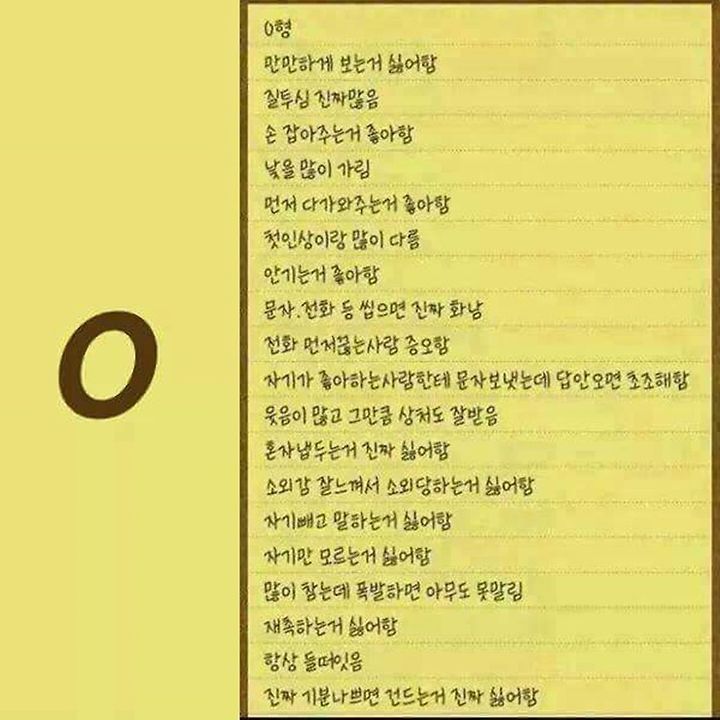 O
O형
만만하게 보는거 싫어함
질투심 진짜많음
손 잡아주는거 좋아함
낯을 많이 가림
먼저 다가와주는거 좋아함
첫인상이랑 많이 다름
안기는거 좋아함
문자.전화 등 씹으면 진짜 화남
전화 먼저끊는사람 증오함
자기가 좋아하는사람한테 문자보냇는데 답안오면 초조해함
웃음이 많고 그만큼 상처도 잘받음
혼자냅두는거 진짜 싫어함
소외감 잘느껴서 소외당하는거 싫어함
자기빼고 말하는거 싫어함
자기만 모르는거 싫어함
많이 참는데 폭발하면 아무도 못말림
재촉하는거 싫어함
항상 들떠잇음
진짜 기분나쁘면 건드는거 진짜 싫어함